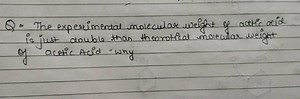 Q = The experimental molecular weight of acetic acid
is just double than theoretical molecular weight
of acetic Acid. Why